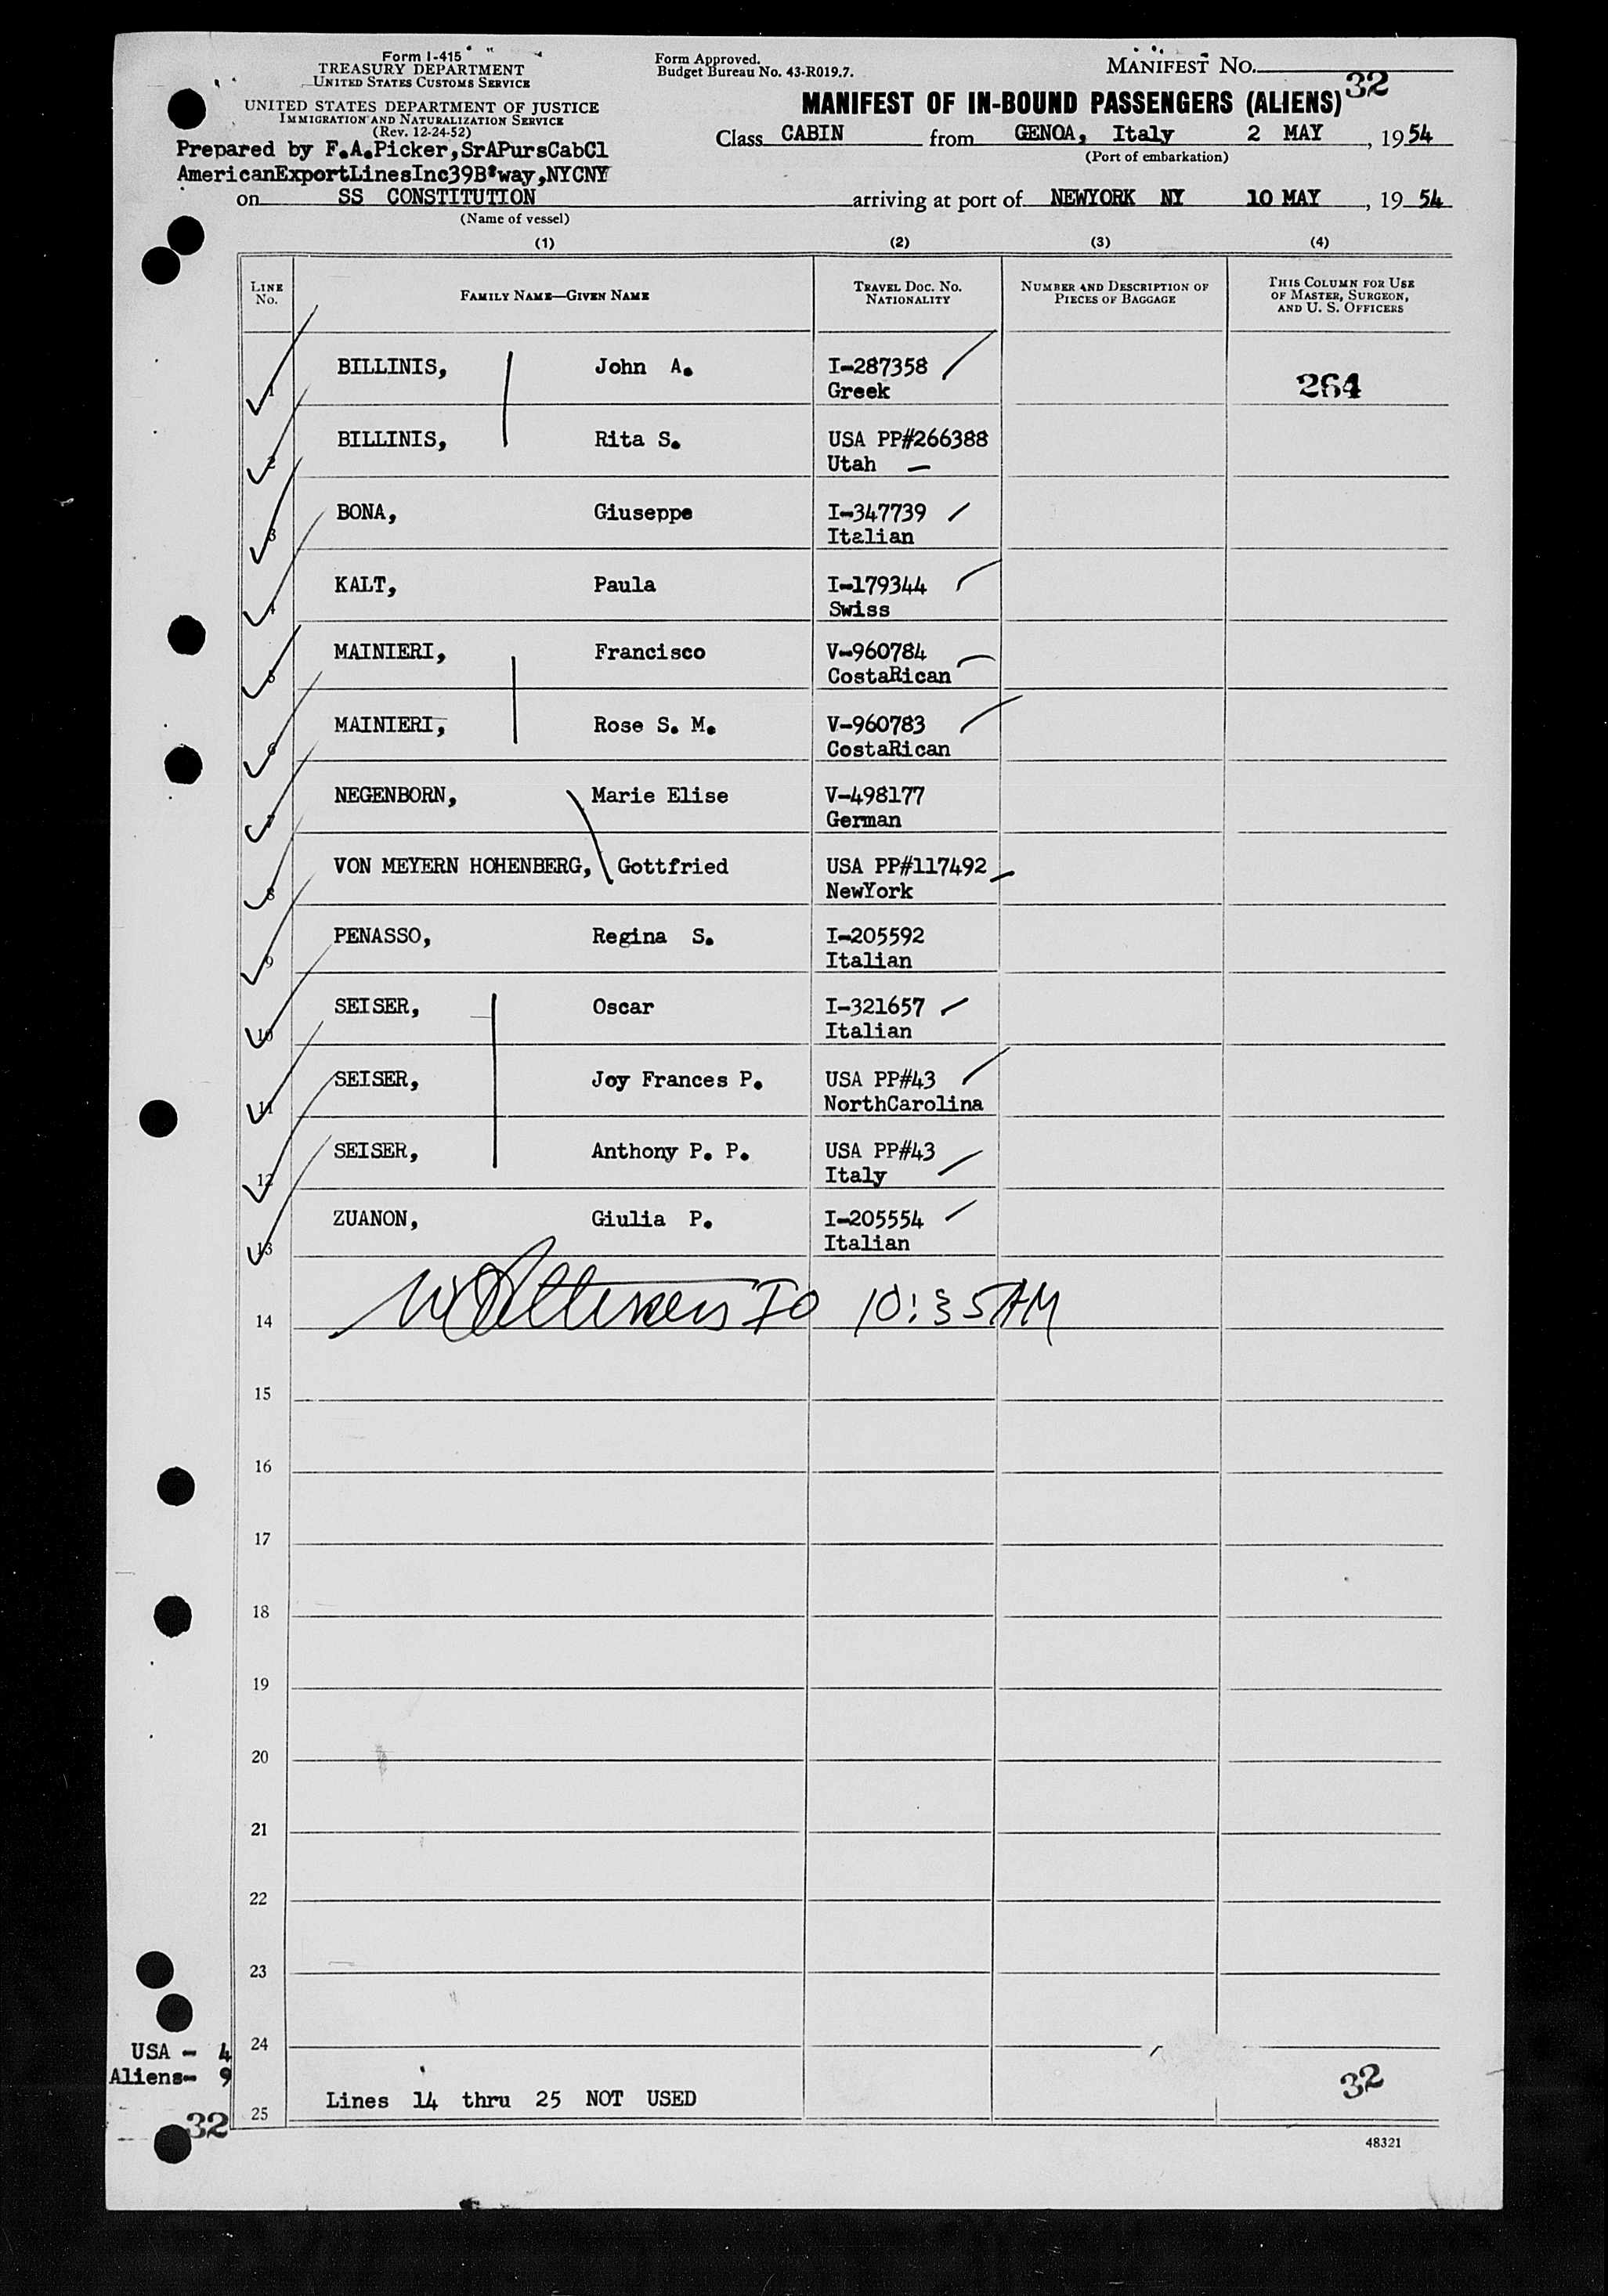 Form I-415
TREASURY DEPARTMENT
UNITED STATES CUSTOMS SERVICE
UNITED STATES DEPARTMENT OF JUSTICE
IMMIGRATION AND NATURALIZATION SERVICE
(Rev. 12-24-52)
Form Approved.
Budget Bureau No. 43-R019.7.
MANIFEST No.
32
MANIFEST OF IN-BOUND PASSENGERS (ALIENS)
Class CABIN from GENOA, Italy 2 MAY, 1954
(Port of embarkation)
Prepared by F.A.Picker,SrAPursCabCl
AmericanExportLinesInc39B'way,NYCNY
on SS CONSTITUTION arriving at port of NEWYORK NY 10 MAY, 1954
(Name of vessel)
(1) (2) (3) (4)
LINE No. FAMILY NAME—GIVEN NAME TRAVEL DOC. NO. NATIONALITY NUMBER AND DESCRIPTION OF PIECES OF BAGGAGE THIS COLUMN FOR USE OF MASTER, SURGEON, AND U. S. OFFICERS
1 BILLINIS, John A. I-287358 264
Greek
2 BILLINIS, Rita S. USA PP#266388
Utah
3 BONA, Giuseppe I-347739
Italian
4 KALT, Paula I-179344
Swiss
5 MAINIERI, Francisco V-960784
CostaRican
6 MAINIERI, Rose S. M. V-960783
CostaRican
7 NEGENBORN, Marie Elise V-498177
German
8 VON MEYERN HOHENBERG, Gottfried USA PP#117492
NewYork
9 PENASSO, Regina S. I-205592
Italian
10 SEISER, Oscar I-321657
Italian
11 SEISER, Joy Frances P. USA PP#43
NorthCarolina
12 SEISER, Anthony P. P. USA PP#43
Italy
13 ZUANON, Giulia P. I-205554
Italian
14 IO 10:35AM
15
16
17
18
19
20
21
22
23
24
USA - 4
Aliens- 9
32
25 Lines 14 thru 25 NOT USED
32
48321